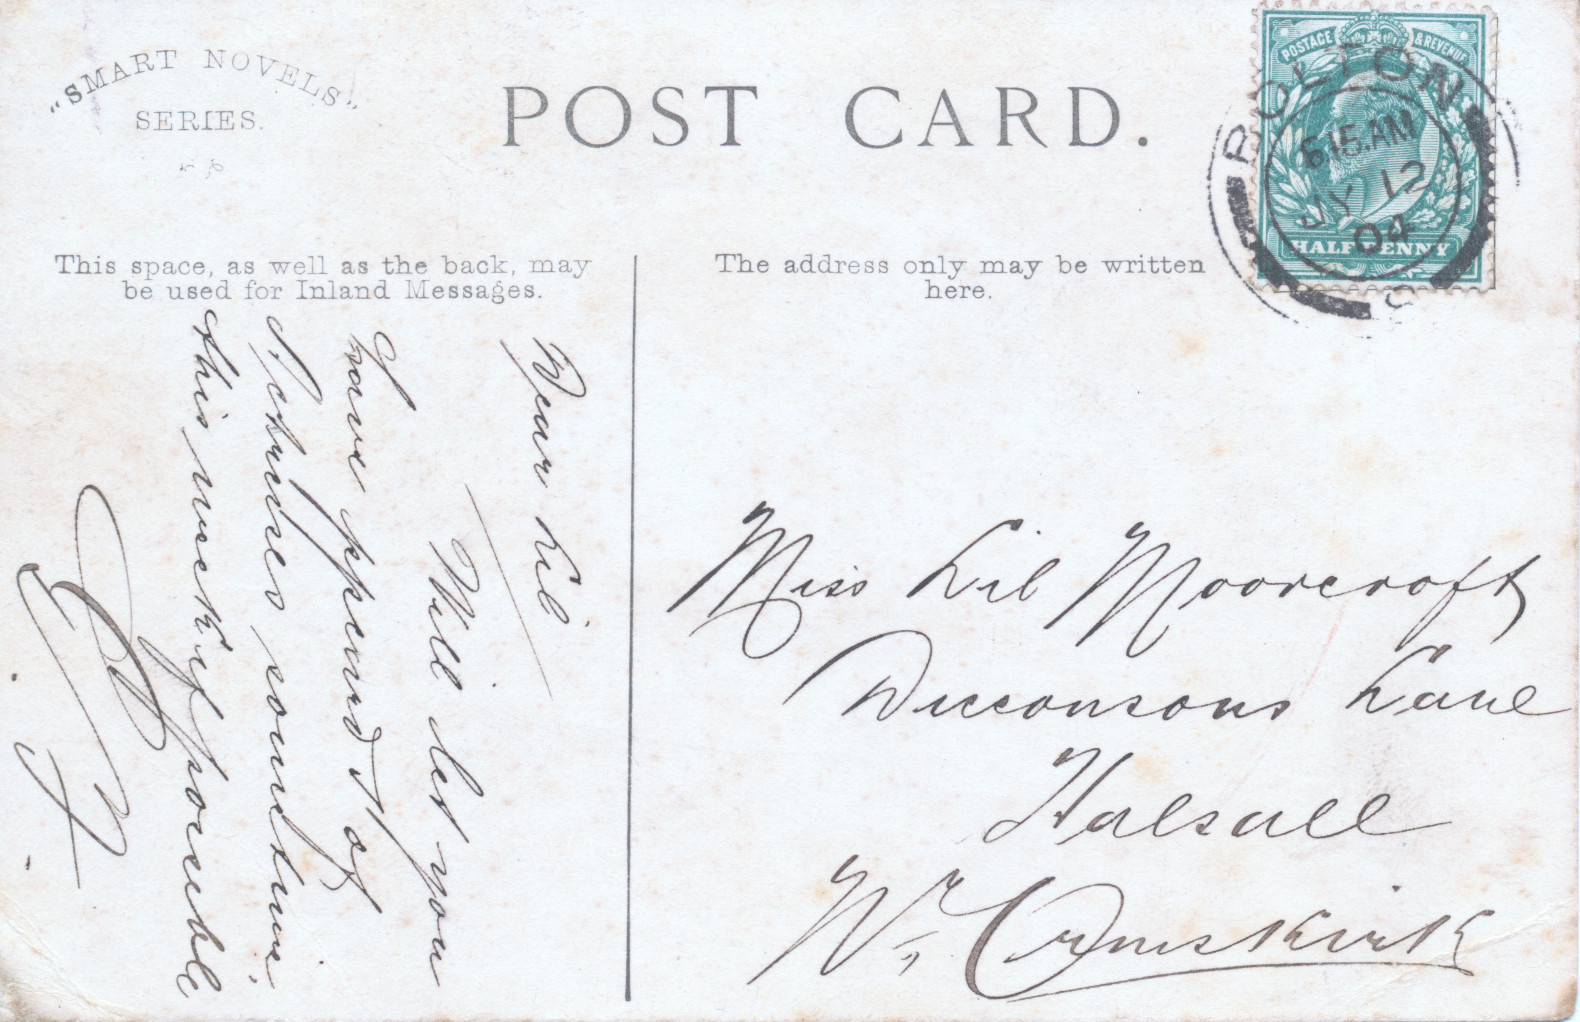 "SMART NOVELS"
SERIES.
POST CARD.
POSTAGE & REVENUE
HALFPENNY
BOLTON
6 15. AM
JY 12
04
This space, as well as the back, may
be used for Inland Messages.
The address only may be written
here.
Dear Lil
Will let you
have ppcard of
Pictures sometime
this week if possible
Miss Lil Moorcroft
Dicconsons Lane
Halsall
Nr Ormskirk